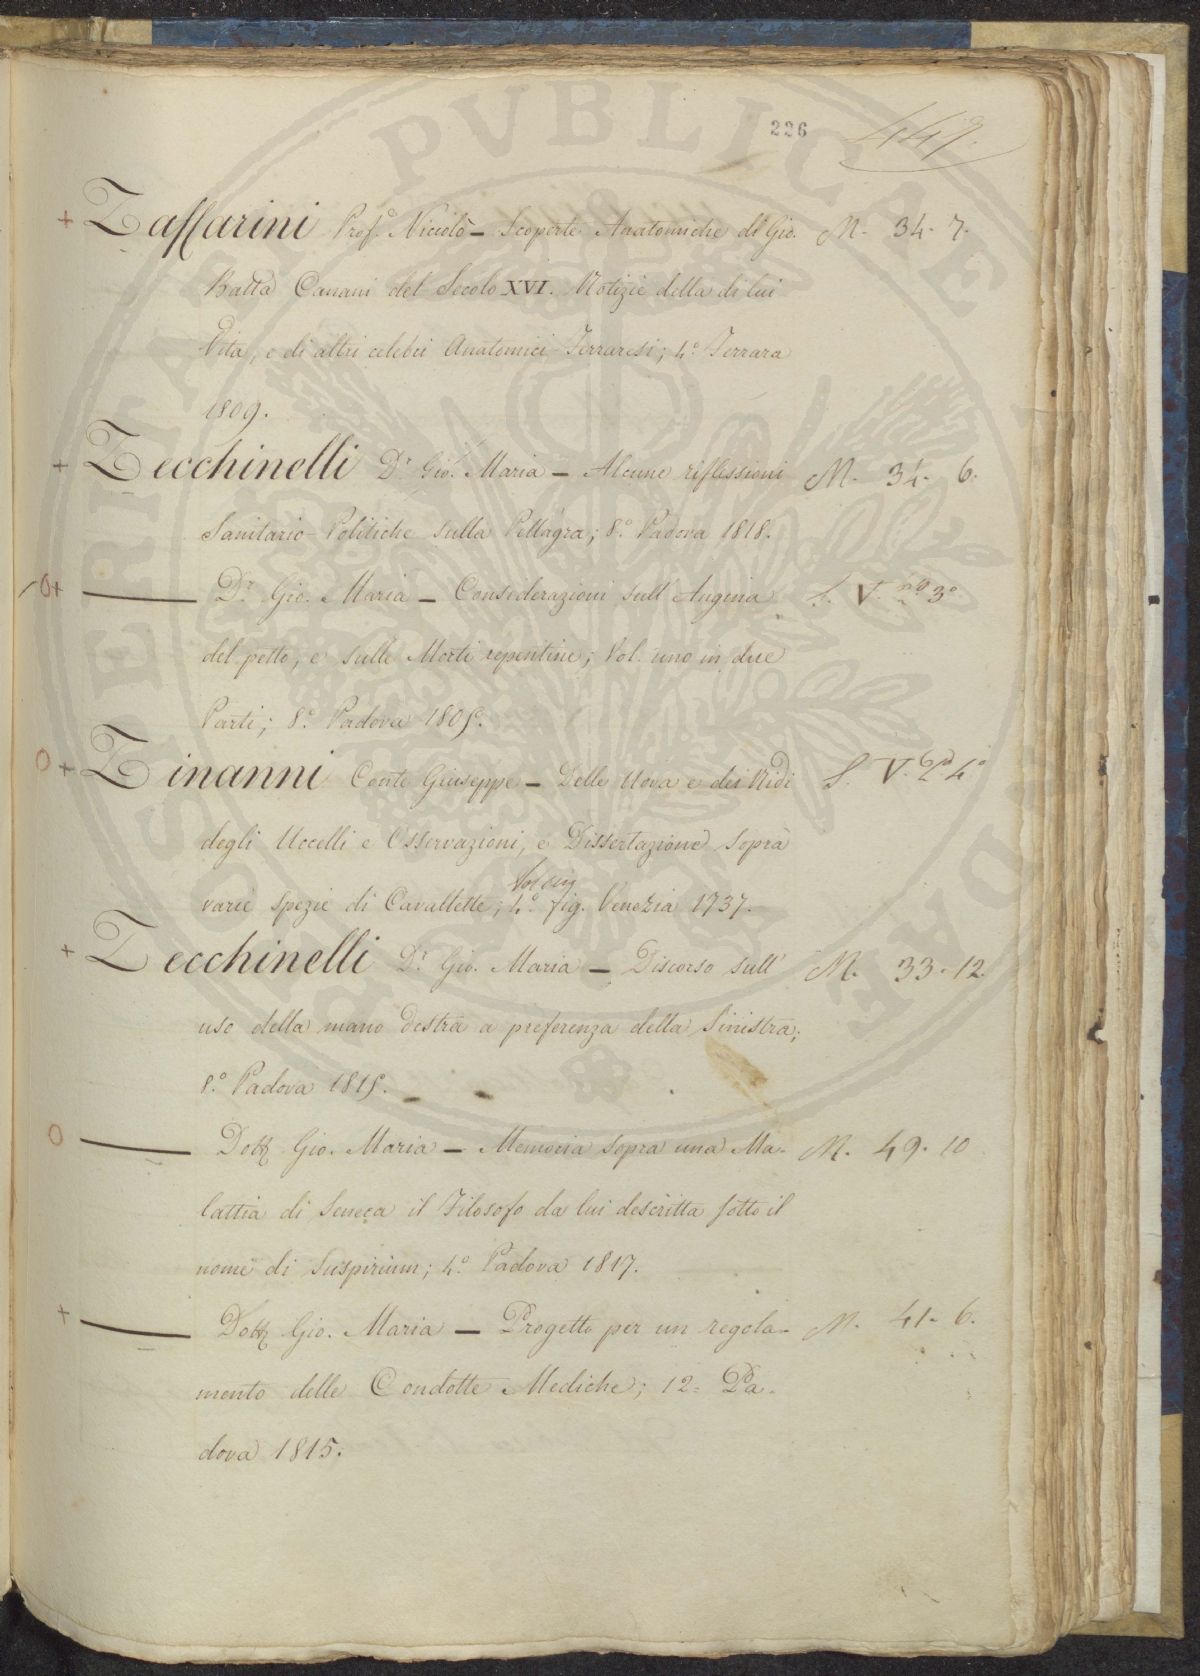 226
449.
+ Zaffarini Prof.r Niccolò – Scoperte Anatomiche di Gio. M. 34. 7.
Batta Canani del Secolo XVI. Notizie della di lui
Vita, e di altri celebri Anatomici Ferraresi; 4.o Ferrara
1809.
+ Zecchinelli D.r Gio. Maria – Alcune riflessioni M. 34. 6.
Sanitario-Politiche sulla Pellagra; 8.o Padova 1818.
+ ——— D.r Gio. Maria – Considerazioni sull'Angina S. V. 3.o
del petto, e sulle Morti repentine; Vol. uno in due
Parti; 8.o Padova
+ Zinanni Conte Giuseppe – Delle Uova e dei Nidi S. V. 4.o
degli Uccelli e Osservazioni, e Dissertazione sopra
varie spezie di Cavallette; 4.o fig. Venezia 1737.
+ Zecchinelli D.r Gio. Maria – Discorso sull' M. 33. 12.
uso della mano destra a preferenza della Sinistra;
8.o Padova
——— Dott. Gio. Maria – Memoria sopra una Ma- M. 49. 10
lattia di Seneca il Filosofo da lui descritta sotto il
nome di Suspirium; 4.o Padova 1817.
+ ——— Dott. Gio. Maria – Progetto per un regola- M. 41. 6.
mento delle Condotte Mediche; 12. Pa-
dova 1815.
PVBLICAE